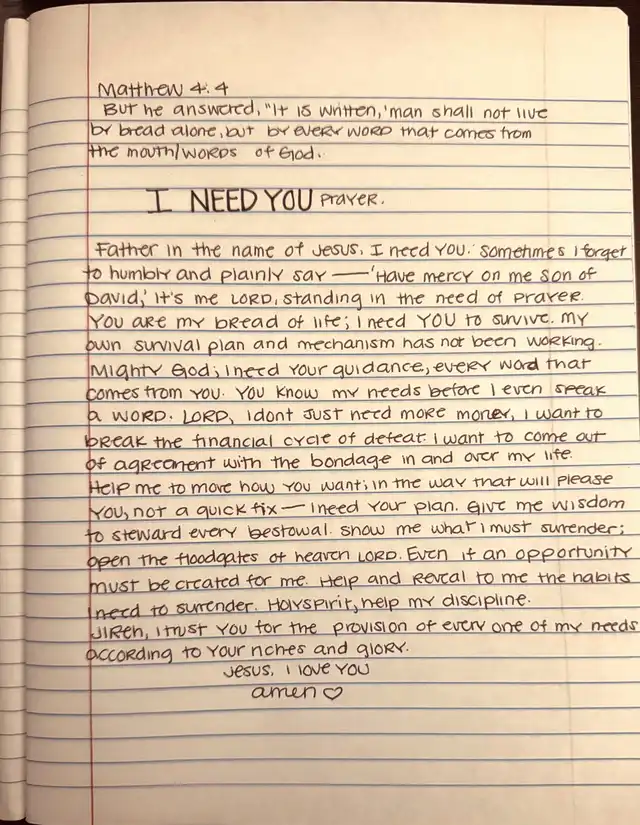 Matthew 4:4
But he answered, "It is written, 'man shall not live
by bread alone, but by every word that comes from
the mouth/words of God.
I NEED YOU Prayer.
Father in the name of Jesus, I need you. Sometimes I forget
to humbly and plainly say — 'Have mercy on me son of
David,' it's me LORD, standing in the need of prayer.
You are my bread of life; I need YOU to survive. My
own survival plan and mechanism has not been working.
Mighty God, I need your guidance, every word that
comes from you. You know my needs before I even speak
a word. LORD, I dont just need more money, I want to
break the financial cycle of defeat. I want to come out
of agreement with the bondage in and over my life.
Help me to move how you want; in the way that will please
you, not a quick fix — I need your plan. Give me wisdom
to steward every bestowal. Show me what I must surrender;
open the floodgates of heaven LORD. Even if an opportunity
must be created for me. Help and Reveal to me the habits
I need to surrender. Holyspirit, help my discipline.
Jireh, I trust you for the provision of every one of my needs
according to your riches and glory.
Jesus, I love you
amen ♡